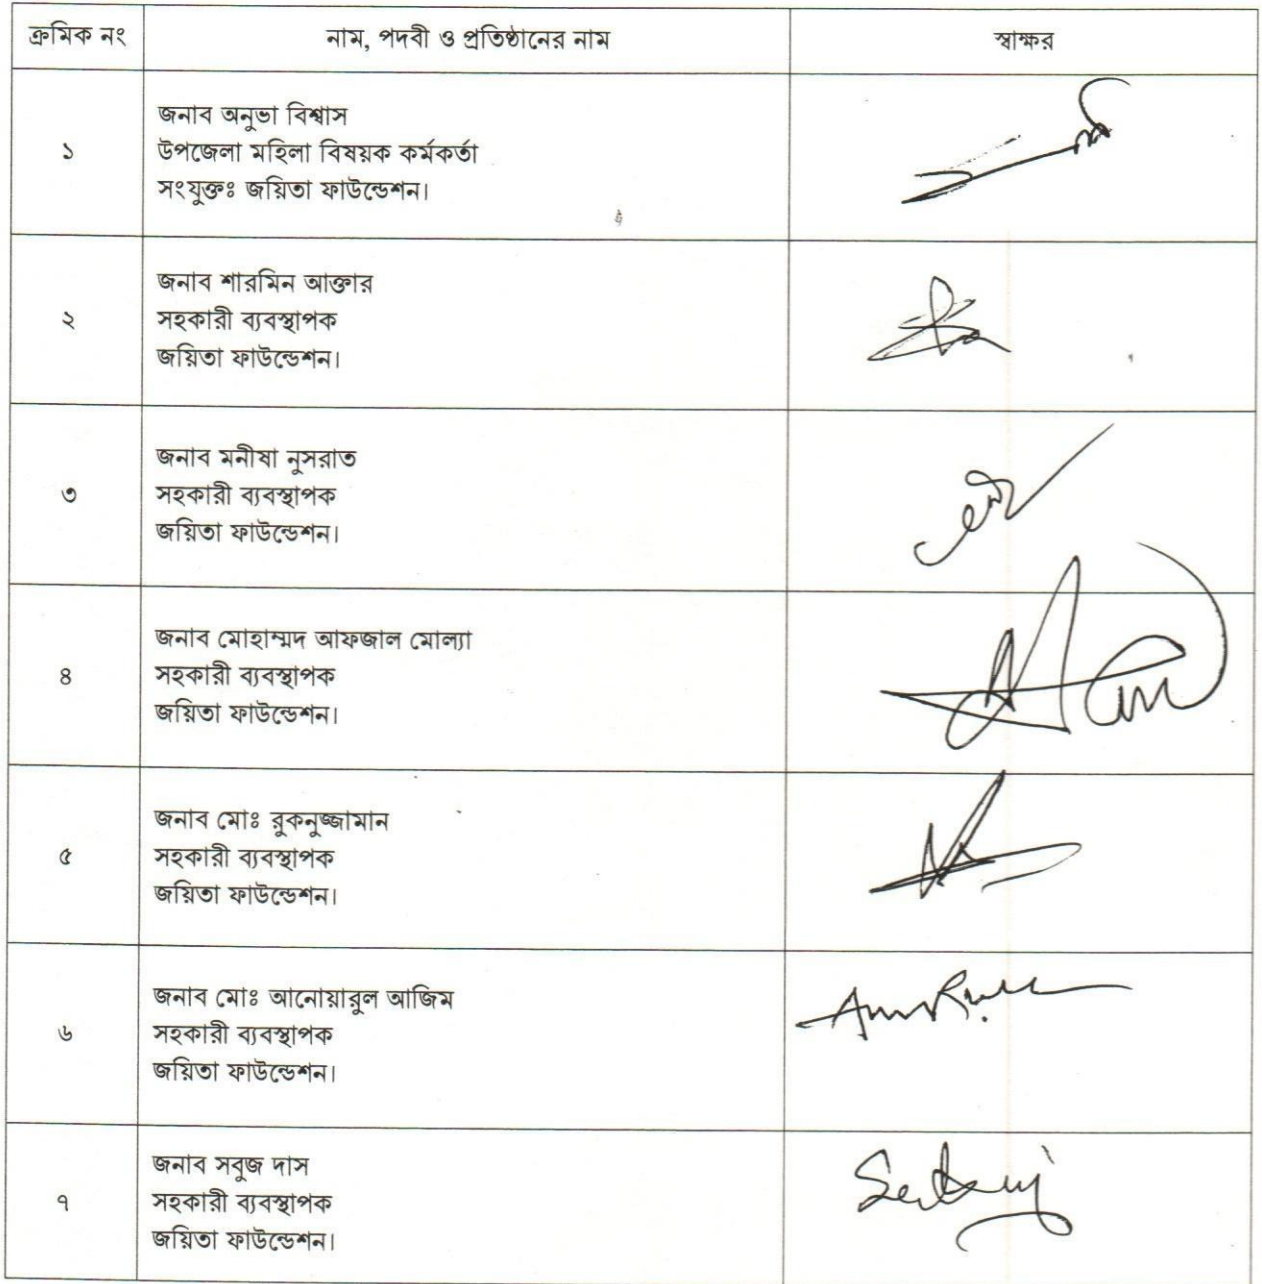 ক্রমিক নং নাম, পদবী ও প্রতিষ্ঠানের নাম স্বাক্ষর
জনাব অনুভা বিশ্বাস
১ উপজেলা মহিলা বিষয়ক কর্মকর্তা
সংযুক্তঃ জয়িতা ফাউন্ডেশন।
জনাব শারমিন আক্তার
২ সহকারী ব্যবস্থাপক
জয়িতা ফাউন্ডেশন।
জনাব মনীষা নুসরাত
৩ সহকারী ব্যবস্থাপক
জয়িতা ফাউন্ডেশন।
জনাব মোহাম্মদ আফজাল মোল্যা
৪ সহকারী ব্যবস্থাপক
জয়িতা ফাউন্ডেশন।
জনাব মোঃ রুকনুজ্জামান
৫ সহকারী ব্যবস্থাপক
জয়িতা ফাউন্ডেশন।
জনাব মোঃ আনোয়ারুল আজিম
৬ সহকারী ব্যবস্থাপক
জয়িতা ফাউন্ডেশন।
জনাব সবুজ দাস
৭ সহকারী ব্যবস্থাপক
জয়িতা ফাউন্ডেশন।